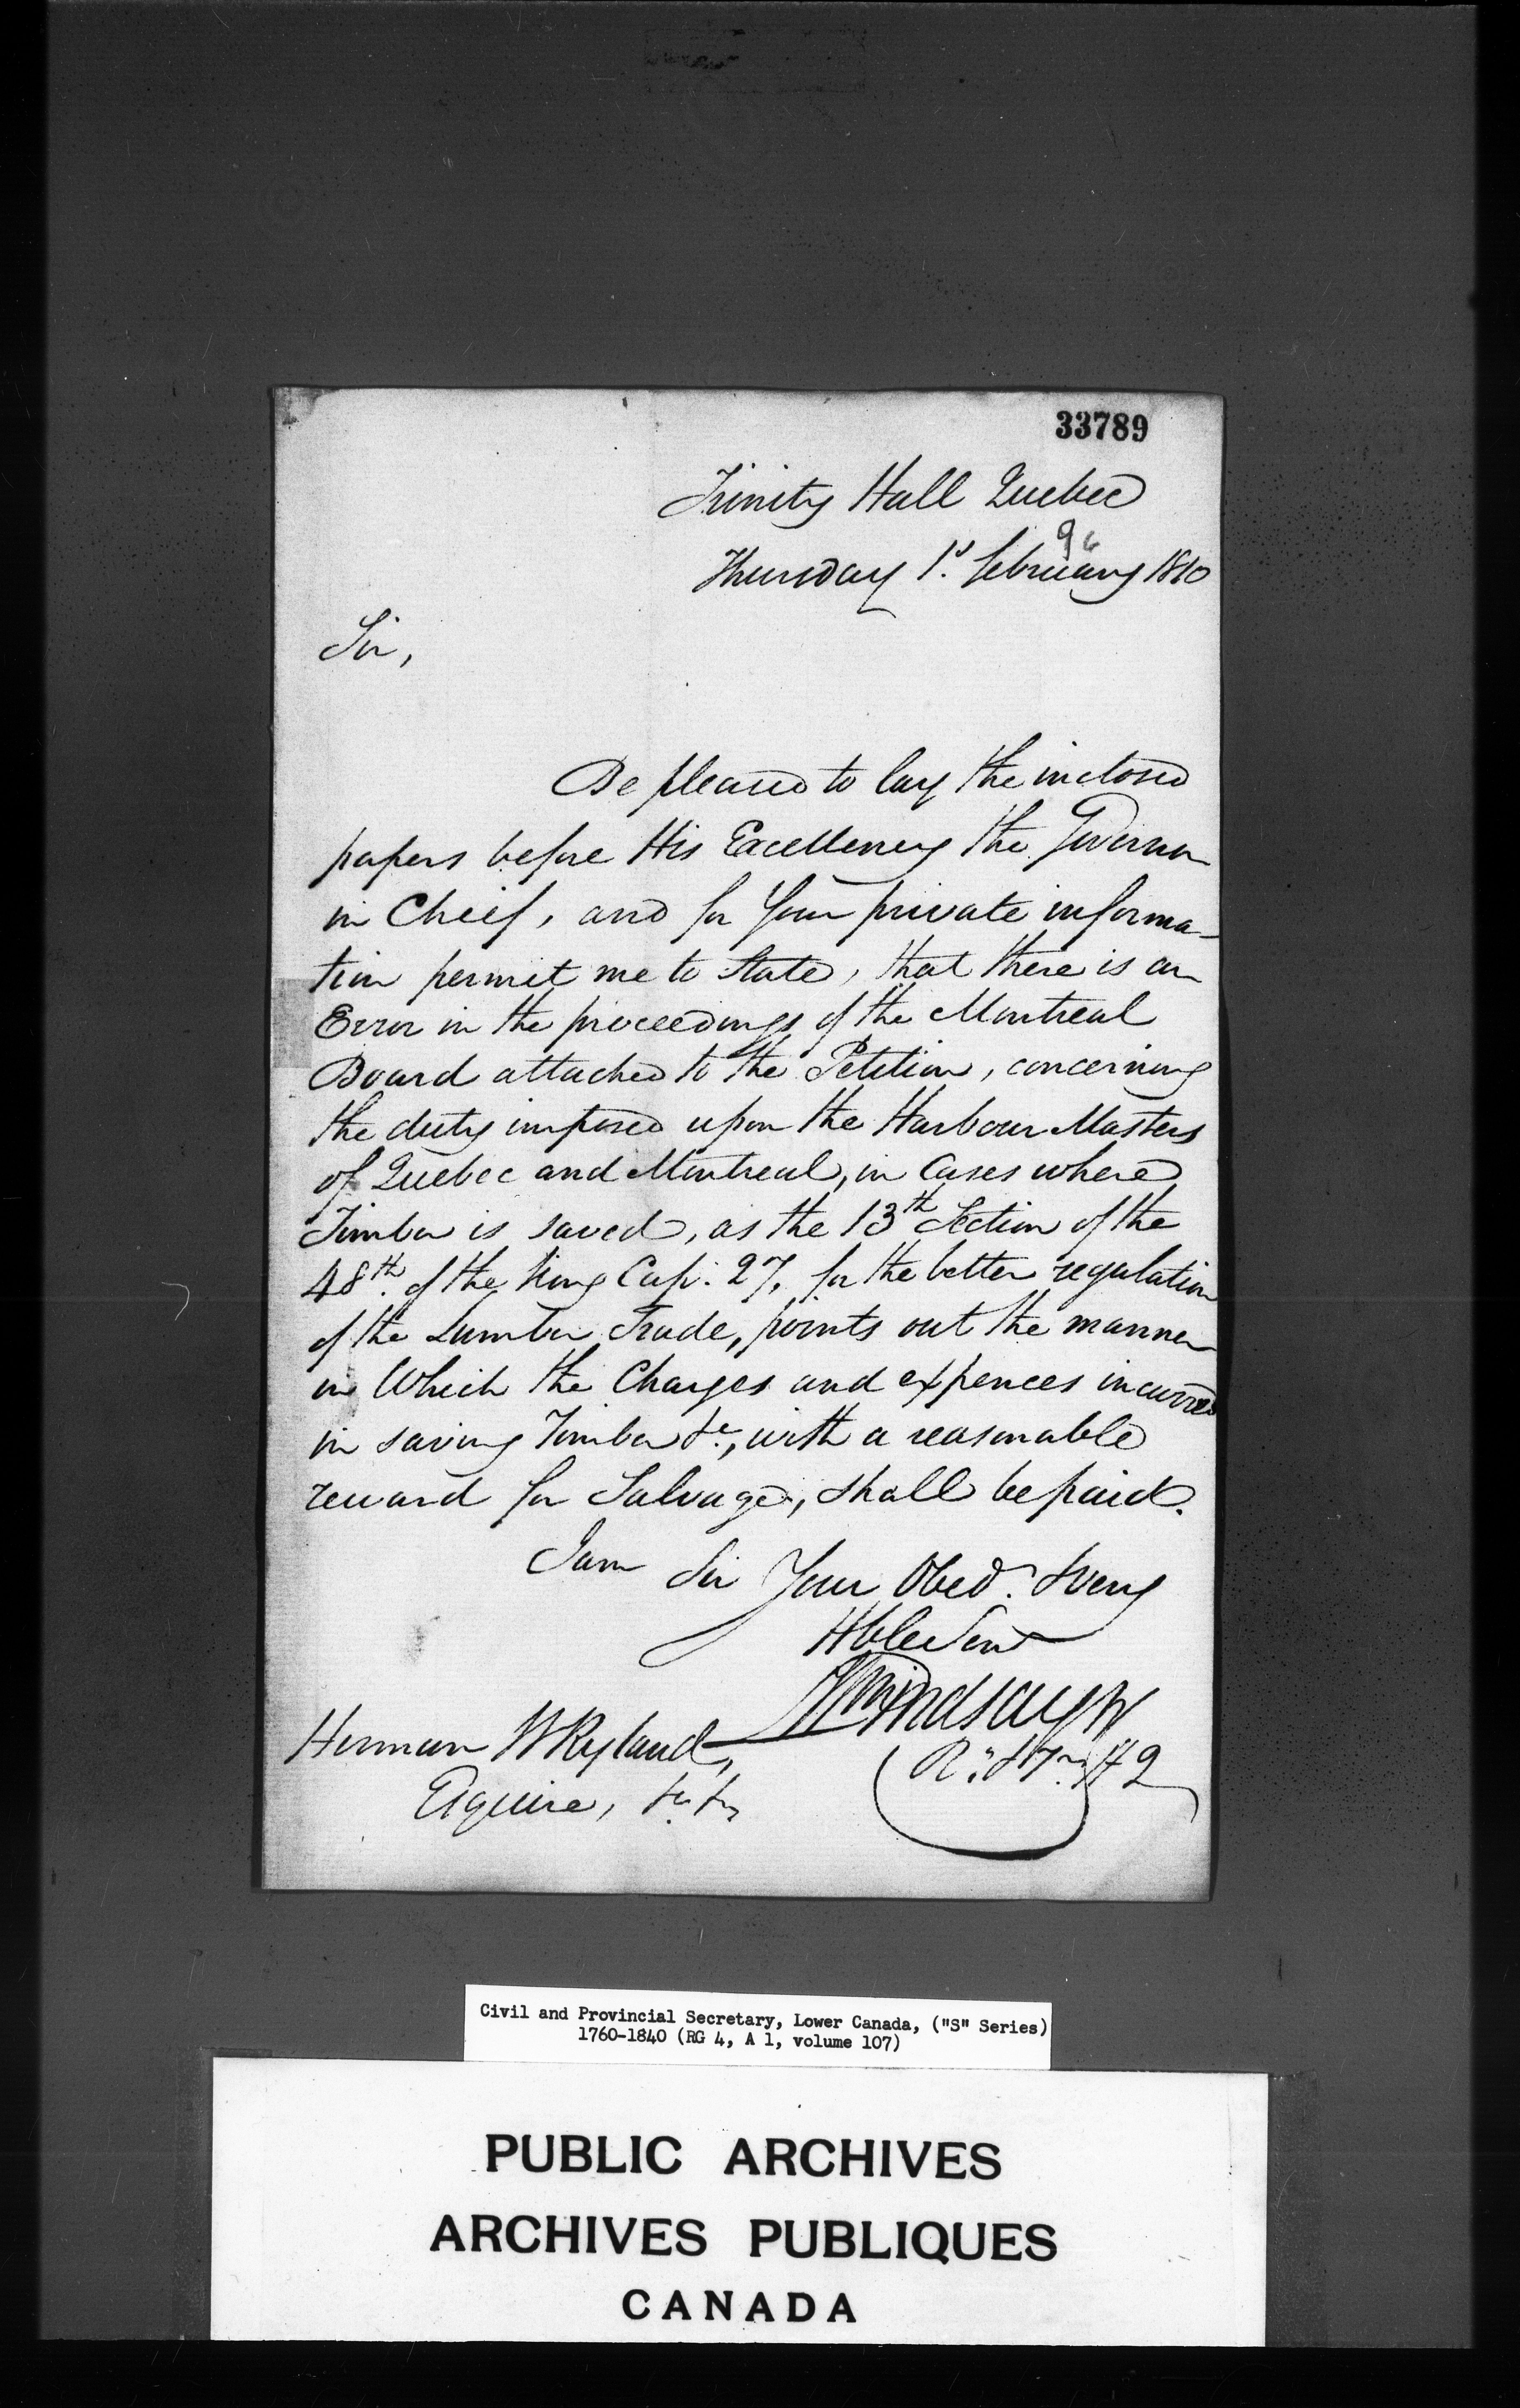 33789
Trinity Hall Quebec
96
Thursday 1st. February 1810
Sir,
Be pleased to lay the inclosed
papers before His Excellency the Governor
in Cheif, and for Your private informa-
tion permit me to State, that there is an
Error in the proceedings of the Montreal
Board attached to the Petition, concerning
the duty imposed upon the Harbour Masters
of Quebec and Montreal, in Cases where
Timber is saved, as the 13th Section of the
48th. of the King Cap: 27, for the better regulation
of the Lumber Trade, points out the manner
in Which the Charges and expences incurred
in saving Timber &c., with a reasonable
reward for Salvage, shall be paid.
I am Sir Your Obed. & Very
Hble Servt
Wm Lindsay Jr
Herman W Ryland,
Esquire, &c. &c
Civil and Provincial Secretary, Lower Canada, ("S" Series)
1760-1840 (RG 4, A 1, volume 107)
PUBLIC ARCHIVES
ARCHIVES PUBLIQUES
CANADA